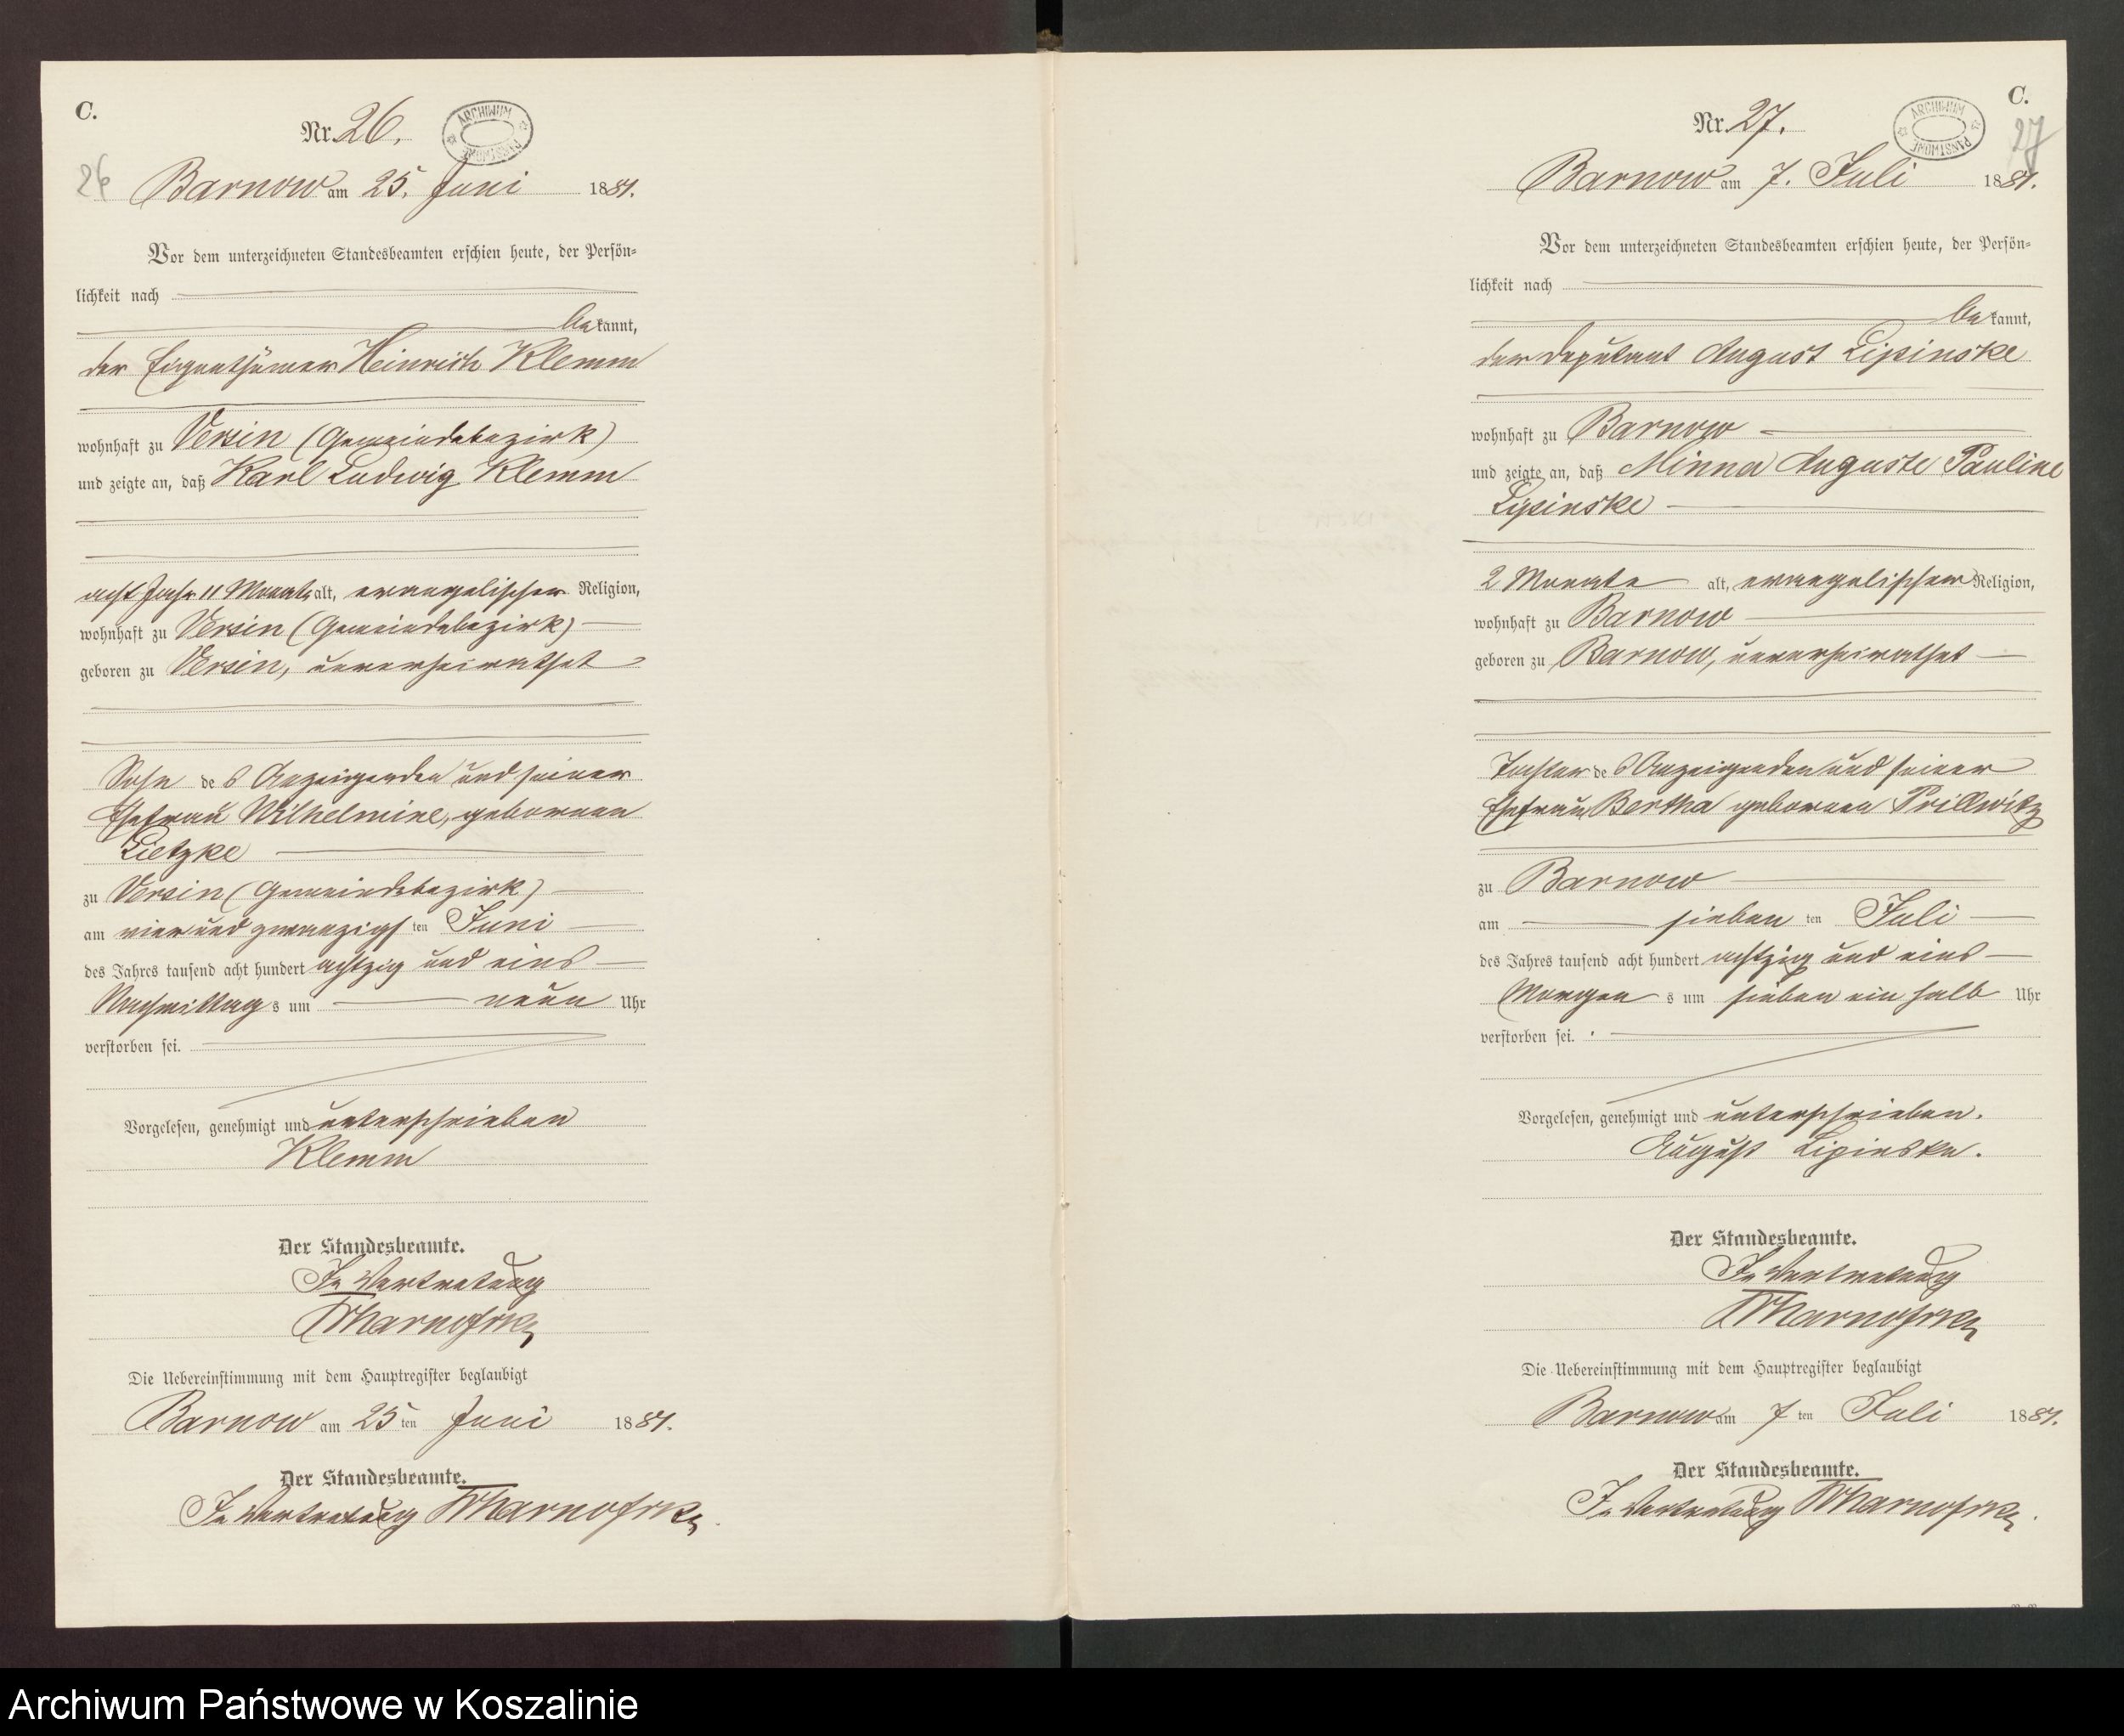 C.
Nr. 26.
ARCHIWUM PAŃSTWOWE
26
Barnow am 25. Juni 1881.
Vor dem unterzeichneten Standesbeamten erschien heute, der Persön-
lichkeit nach
bekannt,
der Eigenthümer Heinrich Klemm
wohnhaft zu Versin (Gemeindebezirk)
und zeigte an, daß Karl Ludwig Klemm
acht Jahr 11 Monate alt, evangelischer Religion,
wohnhaft zu Versin (Gemeindebezirk)
geboren zu Versin, unverheirathet
Sohn des Anzeigenden und seiner
Ehefrau Wilhelmine, geborenen
Lietzke
zu Versin (Gemeindebezirk)
am vier und zwanzigsten Juni
des Jahres tausend acht hundert achtzig und eins
Nachmittags um neun Uhr
verstorben sei.
Vorgelesen, genehmigt und unterschrieben
Klemm
Der Standesbeamte.
In Vertretung
Die Uebereinstimmung mit dem Hauptregister beglaubigt
Barnow am 25ten Juni 1881.
Der Standesbeamte.
In Vertretung
C.
Nr. 27.
ARCHIWUM PAŃSTWOWE
27
Barnow am 7. Juli 1881.
Vor dem unterzeichneten Standesbeamten erschien heute, der Persön-
lichkeit nach
bekannt,
der Deputant August Lipinske
wohnhaft zu Barnow
und zeigte an, daß Minna Auguste Pauline
Lipinske
2 Monate alt, evangelischer Religion,
wohnhaft zu Barnow
geboren zu Barnow, unverheirathet
Tochter des Anzeigenden und seiner
Ehefrau Bertha geborenen Prillwitz
zu Barnow
am siebenten Juli
des Jahres tausend acht hundert achtzig und eins
Morgens um sieben ein halb Uhr
verstorben sei.
Vorgelesen, genehmigt und unterschrieben.
August Lipinske.
Der Standesbeamte.
In Vertretung
Die Uebereinstimmung mit dem Hauptregister beglaubigt
Barnow am 7ten Juli 1881.
Der Standesbeamte.
In Vertretung
Archiwum Państwowe w Koszalinie